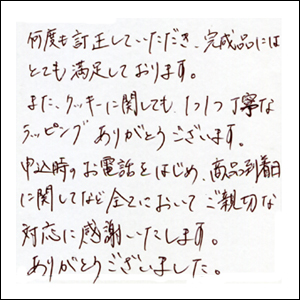 何度も訂正していただき、完成品には
とても満足しております。
また、クッキーに関しても、1つ1つ丁寧な
ラッピングありがとうございます。
申込時のお電話をはじめ、商品到着日
に関してなど全てにおいてご親切な
対応に感謝いたします。
ありがとうございました。